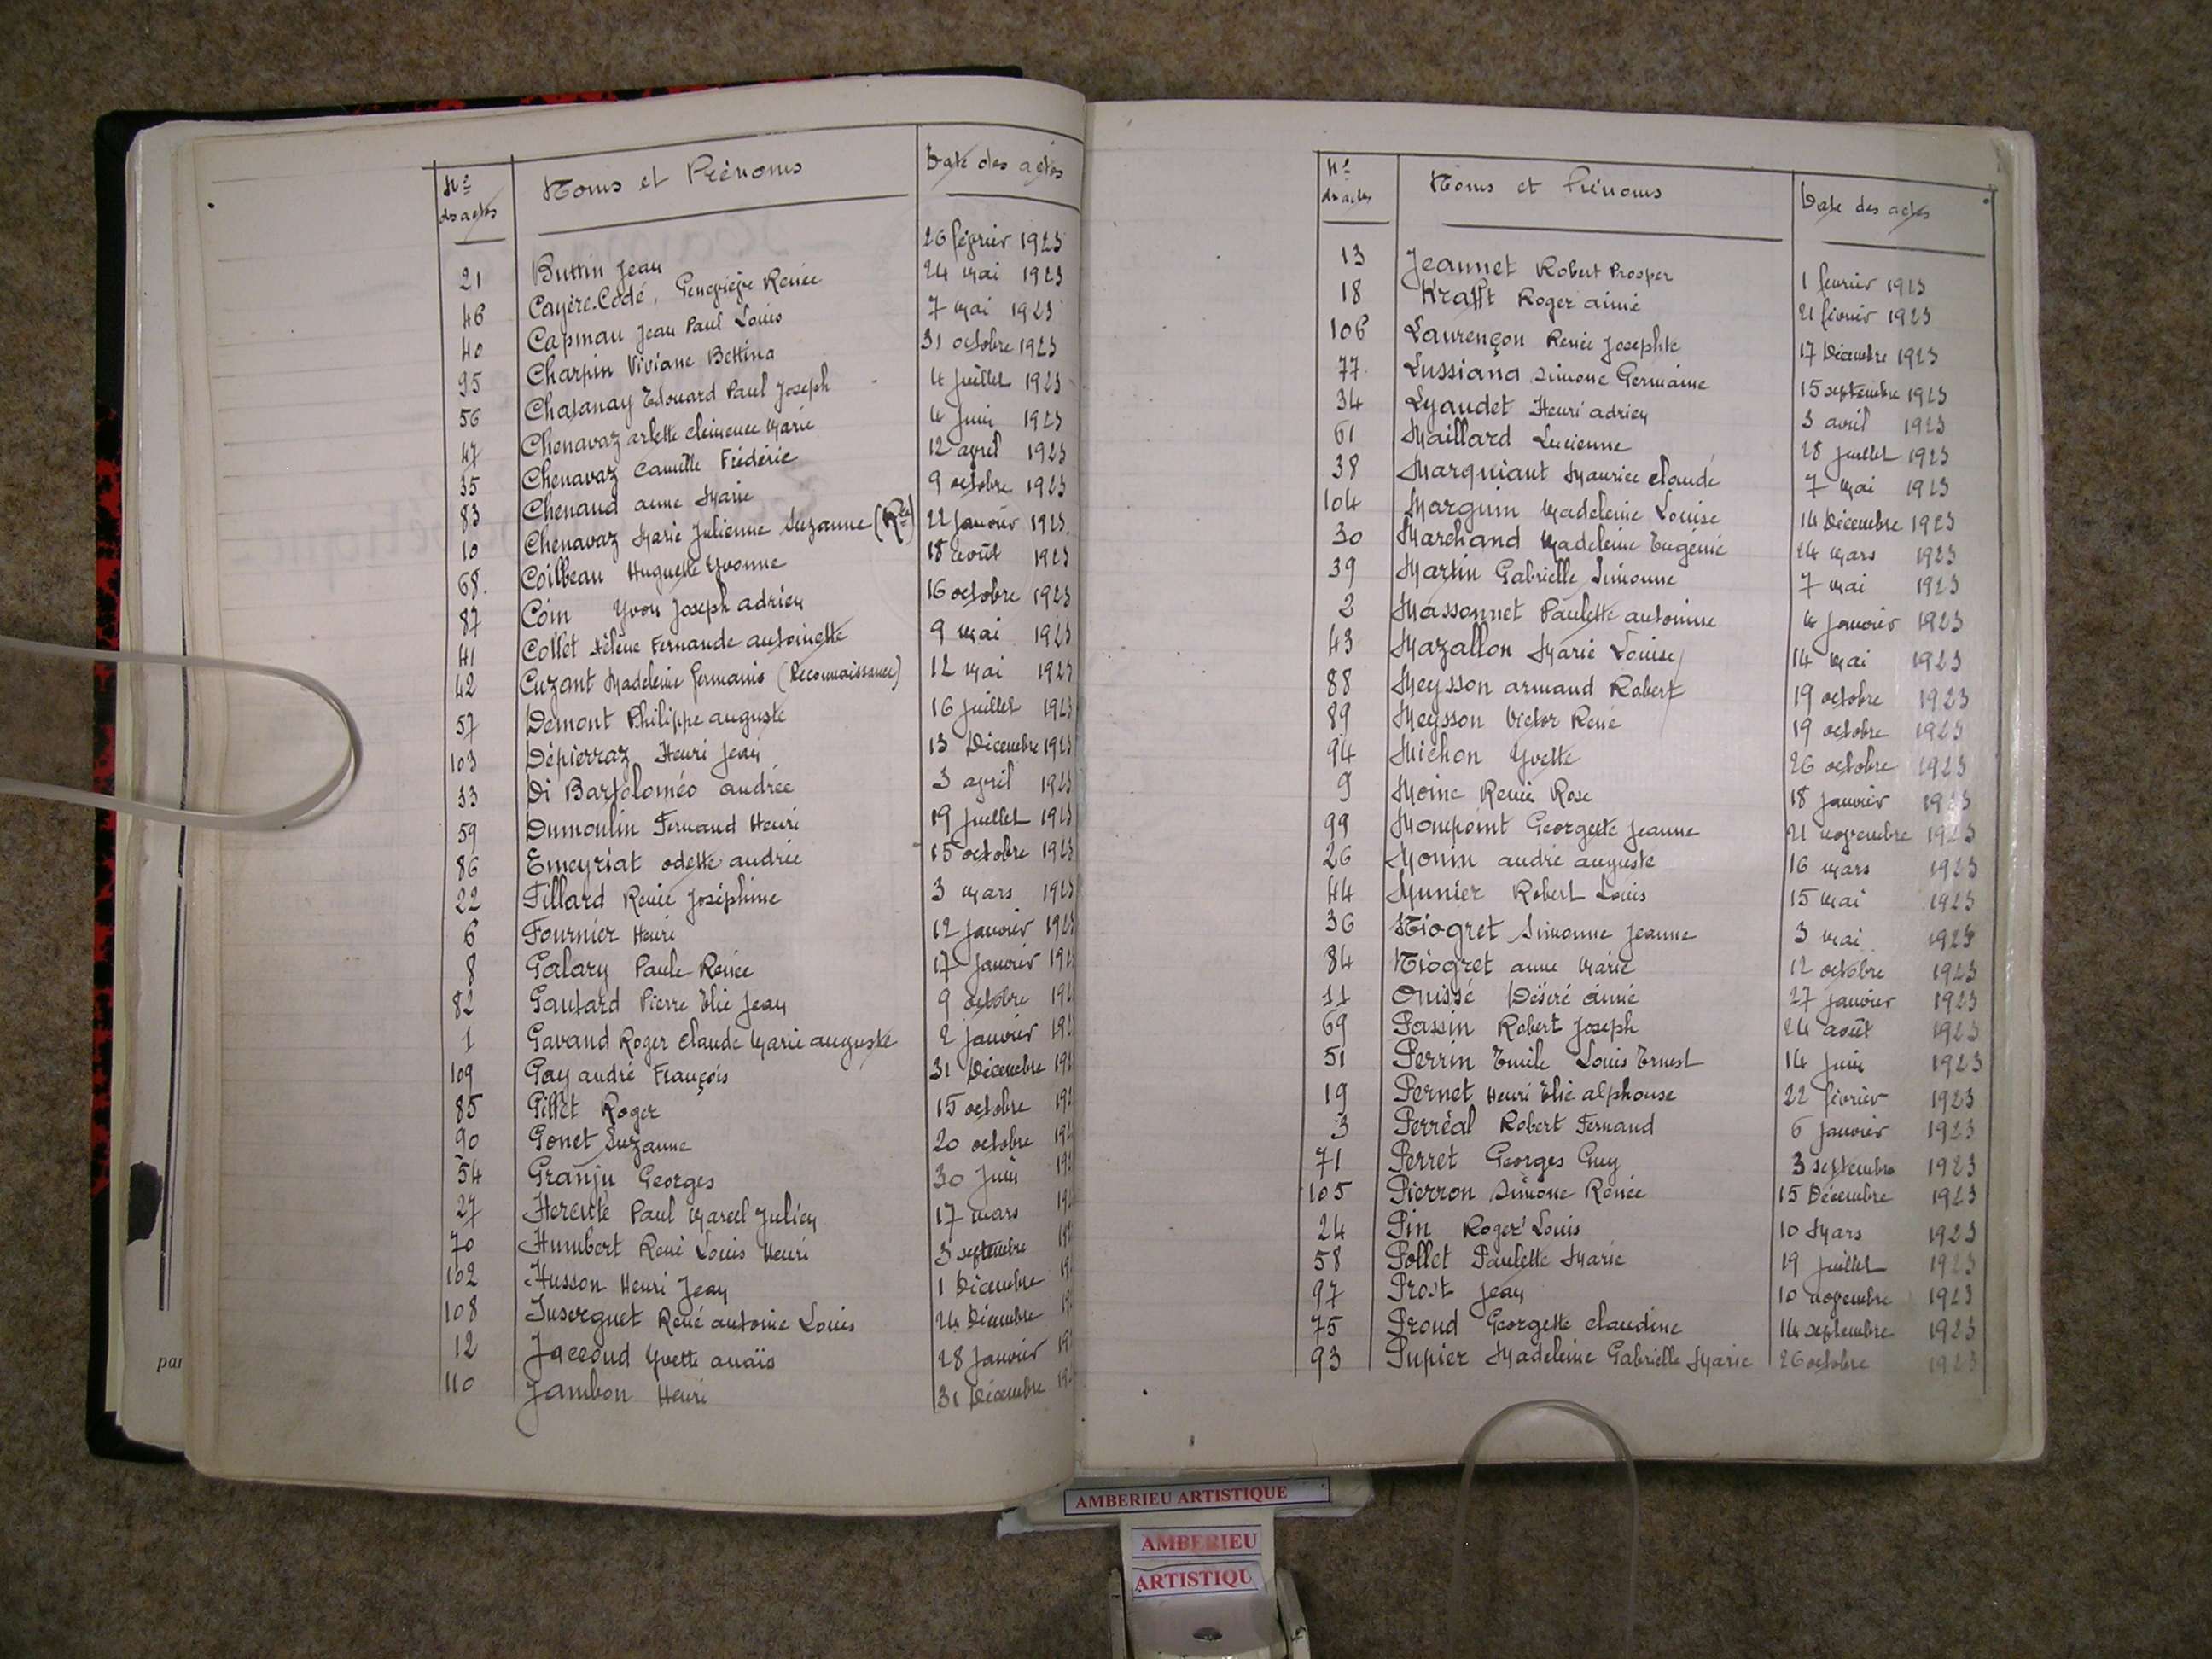 Nos des actes | Noms et Prénoms | Date des actes
21 | Buttin Jean | 26 février 1923
46 | Cayère-Codé, Geneviève Renée | 24 Mai 1923
40 | Capmau Jean Paul Louis | 7 Mai 1923
95 | Charpin Viviane Bettina | 31 octobre 1923
56 | Chatanay Edouard Paul Joseph | 4 Juillet 1923
47 | Chenavaz Arlette Clémence Marie | 4 Juin 1923
35 | Chenavaz Camille Frédéric | 12 avril 1923
83 | Chenaud Anne Marie | 9 octobre 1923
10 | Chenavaz Marie Julienne Suzanne (Rce) | 22 Janvier 1923
68 | Coilbeau Huguette Yvonne | 18 août 1923
87 | Coin Yvon Joseph Adrien | 16 octobre 1923
41 | Collet Hélène Fernande Antoinette | 9 Mai 1923
42 | Cuzant Madeleine Germaine (Reconnaissance) | 12 Mai 1923
57 | Demont Philippe Auguste | 16 Juillet 1923
103 | Dépierraz Henri Jean | 13 Décembre 1923
33 | Di Bartoloméo Andrée | 3 avril 1923
59 | Dumoulin Fernand Henri | 19 Juillet 1923
86 | Emeyriat Odette Andrée | 15 octobre 1923
22 | Fillard Renée Joséphine | 3 Mars 1923
6 | Fournier Henri | 12 Janvier 1923
8 | Galary Paule Renée | 17 Janvier 192
82 | Gautard Pierre Elie Jean | 9 octobre 192
1 | Gavand Roger Claude Marie Auguste | 2 Janvier 192
109 | Gay André François | 31 Décembre 192
85 | Gillet Roger | 15 octobre 192
90 | Gonet Suzanne | 20 octobre 192
54 | Granju Georges | 30 Juin 19
27 | Paul Marcel Julien | 17 mars 19
70 | Humbert René Louis Henri | 3 septembre 19
102 | Husson Henri Jean | 1 Décembre 19
108 | Inserguet René Antoine Louis | 24 Décembre 19
12 | Jaccoud Yvette Anaïs | 28 Janvier 19
110 | Jambon Henri | 31 Décembre 19
Nos des actes | Noms et Prénoms | Date des actes
13 | Jeannet Robert Prosper | 1 février 1923
18 | Krafft Roger Aimé | 21 février 1923
106 | Laurençon Renée Josephte | 17 Décembre 1923
77 | Lussiana Simone Germaine | 15 septembre 1923
34 | Lyaudet Henri Adrien | 3 avril 1923
61 | Maillard Lucienne | 28 Juillet 1923
38 | Marquiant Maurice Claude | 7 Mai 1923
104 | Marguin Madeleine Louise | 14 Décembre 1923
30 | Marchand Madeleine Eugenie | 24 Mars 1923
39 | Martin Gabrielle Simonne | 7 Mai 1923
2 | Massonnet Paulette Antonine | 4 Janvier 1923
43 | Mazallon Marie Louise | 14 Mai 1923
88 | Meysson Armand Robert | 19 octobre 1923
89 | Meysson Victor René | 19 octobre 1923
94 | Michon Yvette | 26 octobre 1923
9 | Moine Renée Rose | 18 Janvier 1923
99 | Monpoint Georgette Jeanne | 21 novembre 1923
26 | Monin André Auguste | 16 Mars 1923
44 | Munier Robert Louis | 15 Mai 1923
36 | Niogret Simonne Jeanne | 3 Mai 1923
84 | Niogret Anne Marie | 12 octobre 1923
11 | Onissé Déséré Aimé | 27 Janvier 1923
69 | Passin Robert Joseph | 24 août 1923
51 | Perrin Emile Louis Ernest | 14 Juin 1923
19 | Pernet Henri Elie Alphonse | 22 février 1923
3 | Perréal Robert Fernand | 6 Janvier 1923
71 | Perret Georges Guy | 3 septembre 1923
105 | Pierron Simone Renée | 15 Décembre 1923
24 | Pin Roger Louis | 10 Mars 1923
58 | Pollet Paulette Marie | 19 Juillet 1923
97 | Prost Jean | 10 novembre 1923
75 | Proud Georgette Claudine | 14 septembre 1923
93 | Pupier Madeleine Gabrielle Marie | 26 octobre 1923
par
AMBERIEU ARTISTIQUE
AMBERIEU
ARTISTIQU